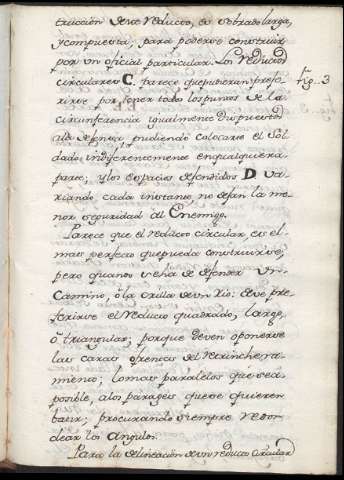 truccion de este Reducto, es sobrado larga,
y compuesta, para poderse construir
por un oficial particular. Los Reductos
circulares C. parece que pudieran prefe-
rirse por tener todos los puntos de la
circunferencia igualmente dispuestos
a la defensa, pudiendo colocarse el Sol-
dado indiferentemente en qualquiera
parte; y los espacios defendidos D va-
riando cada instante, no dejan la me-
nor seguridad al Enemigo.
fig. 3
Parece que el reducto circular, es el
mas perfecto que pueda construirse;
pero quando se ha de defender un
Camino, ó la orilla de un Rio: deve pre-
ferirse el Reducto quadrado, largo,
ó triangular; porque deven oponerse
las caras ofensas del Retrincheras-
miento; lo mas paralelos que sea
posible, a los parages que se quieren
batir; procurando siempre redon-
dear los angulos.
Para la delineacion de un reducto Circular